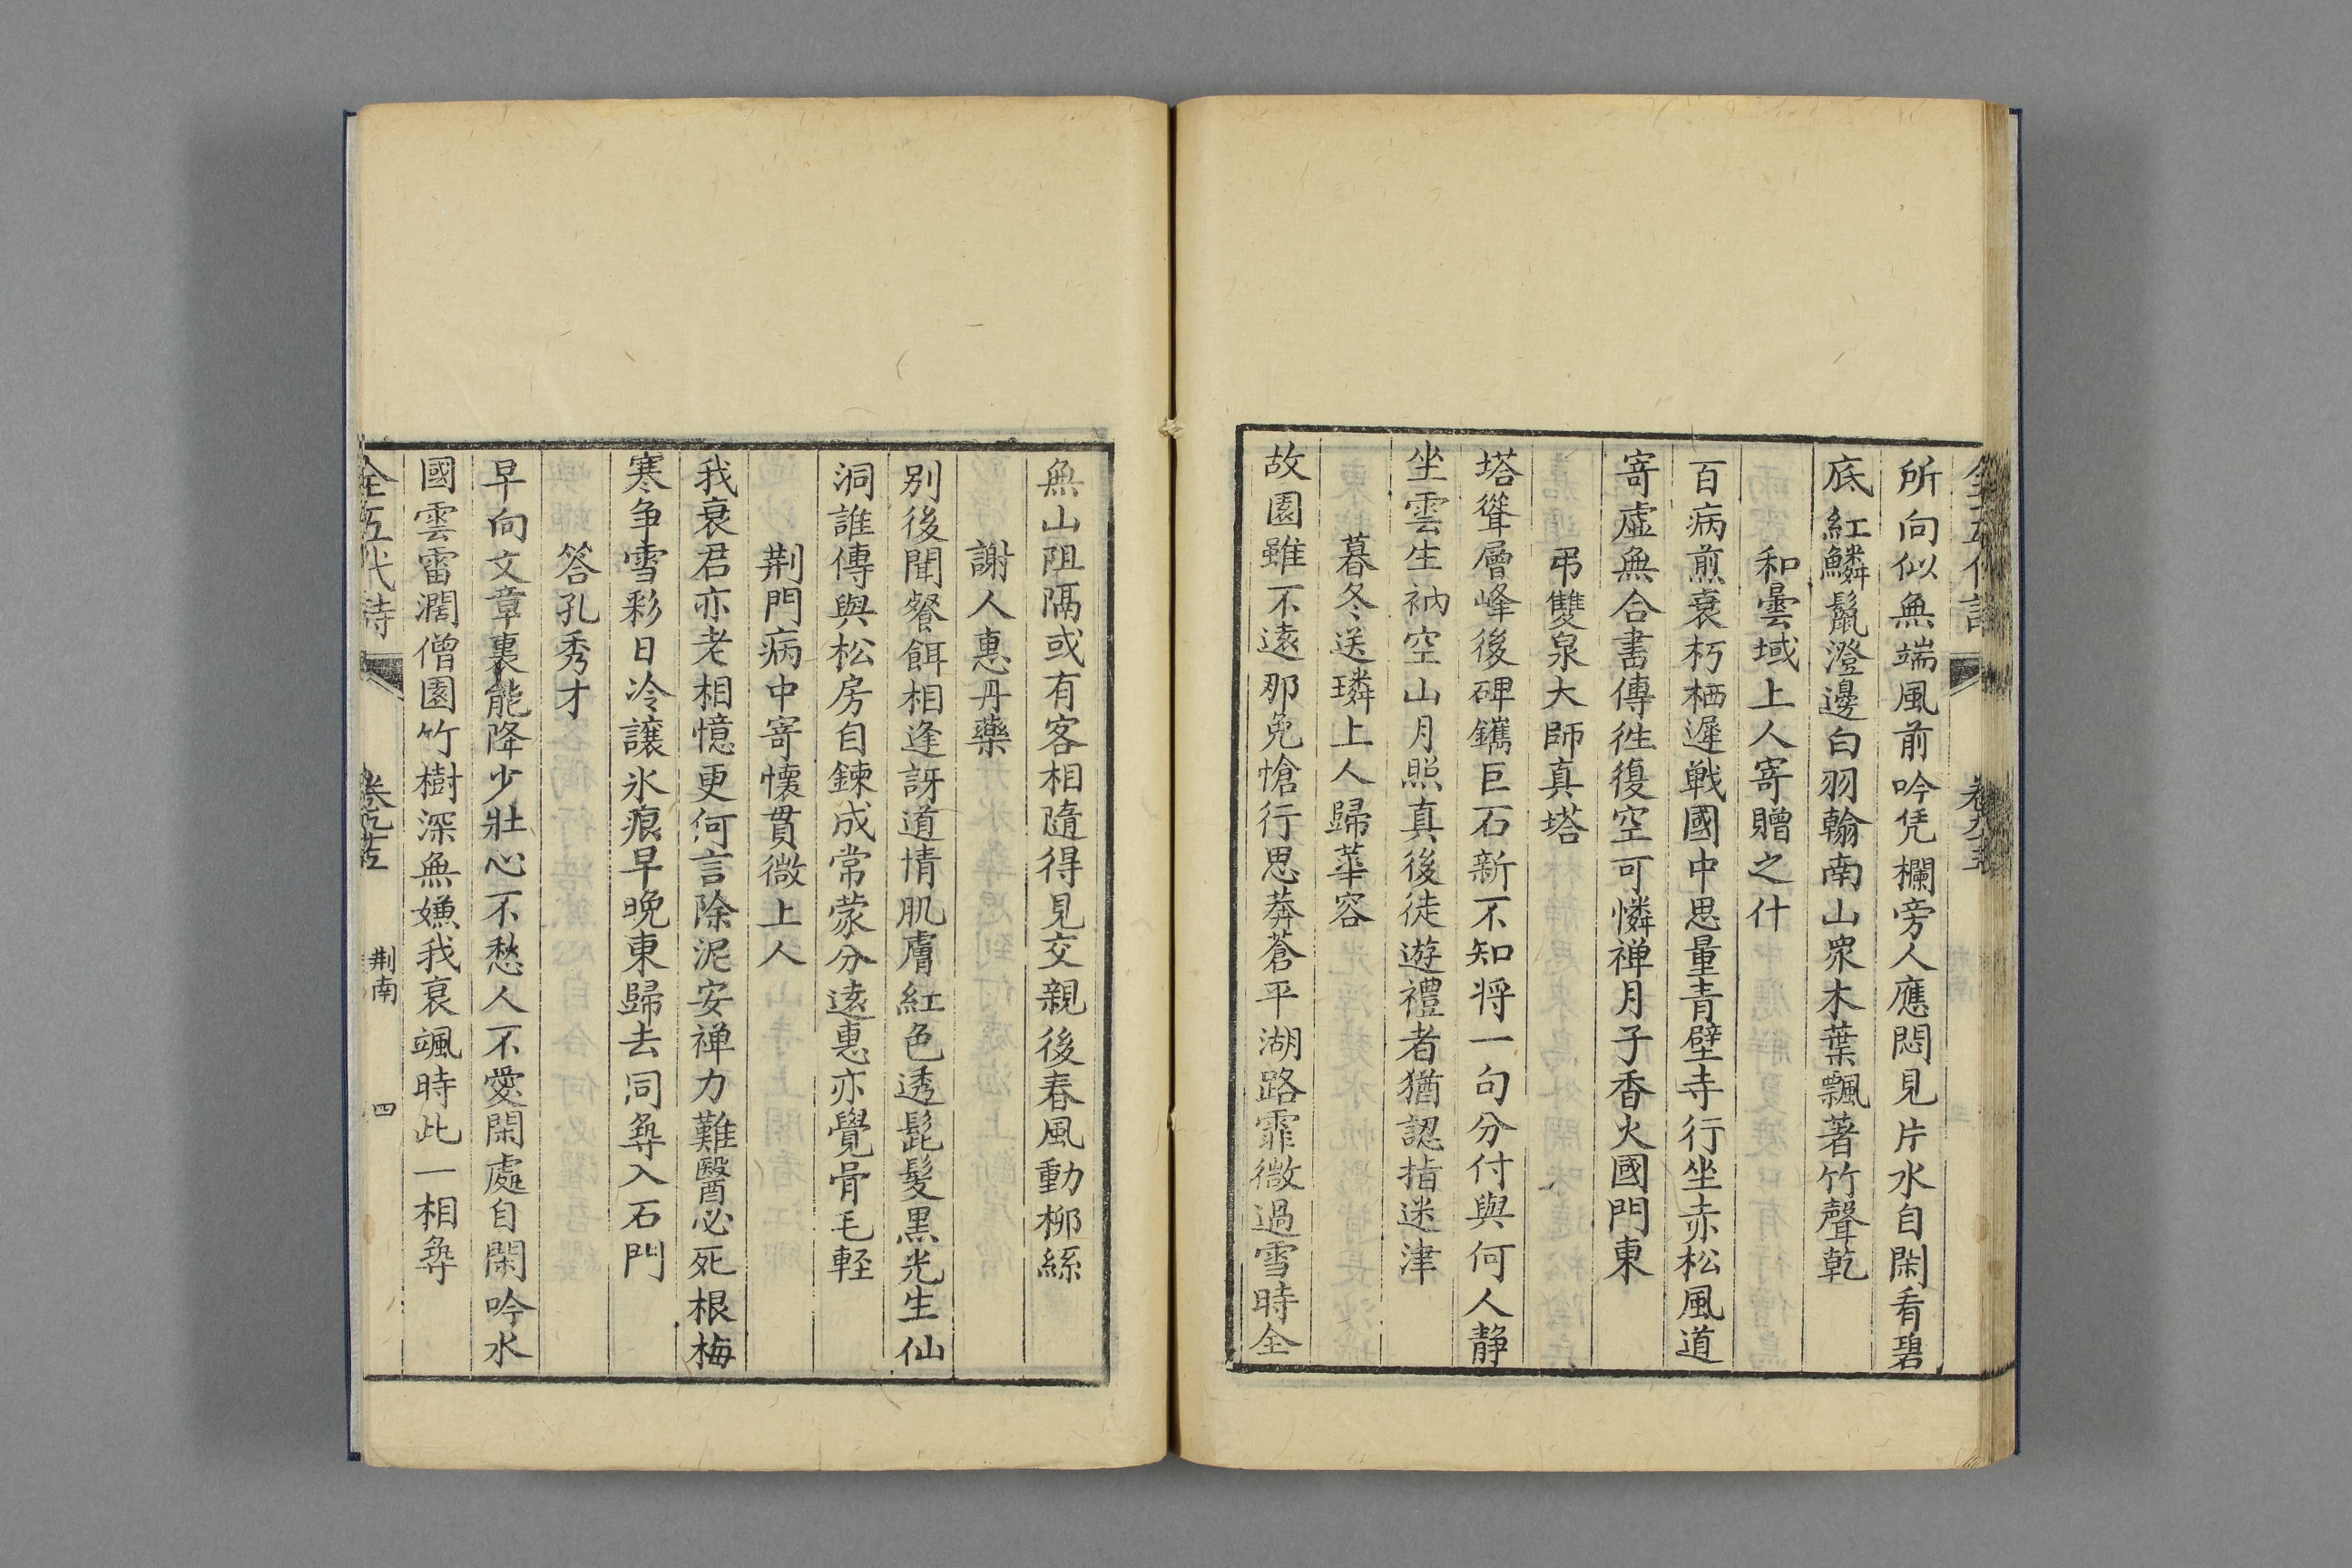 所向似無端風前吟凭欄旁人應悶見片水自閑看碧
底紅鱗鬣澄邊白羽翰南山衆木葉飄著竹聲乾
和曇域上人寄贈之什
百病煎衰朽栖遲戰國中思量青壁寺行坐赤松風道
寄虛無合書傳徃復空可憐禅月子香火國門東
弔雙泉大師真塔
塔聳層峰後碑鐫巨石新不知将一句分付與何人静
坐雲生衲空山月照真後徒遊禮者猶認指迷津
暮冬送璘上人歸華容
故園雖不遠那免愴行思莽蒼平湖路霏微過雪時全
無山阻隔或有客相隨得見交親後春風動桞絲
謝人惠丹藥
别後聞餐餌相逢訝道情肌膚紅色透髭髮黒光生仙
洞誰傳與松房自鍊成常蒙分遠惠亦覺骨毛軽
荆門病中寄懐貫微上人
我衰君亦老相憶更何言除泥安禅力難醫必死根梅
寒争雪彩日冷讓氷痕早晚東歸去同尋入石門
答孔秀才
早向文章裏能降少壯心不愁人不愛閑處自閑吟水
國雲雷濶僧園竹樹深無嫌我衰颯時此一相尋
全五代詩
荆南
四